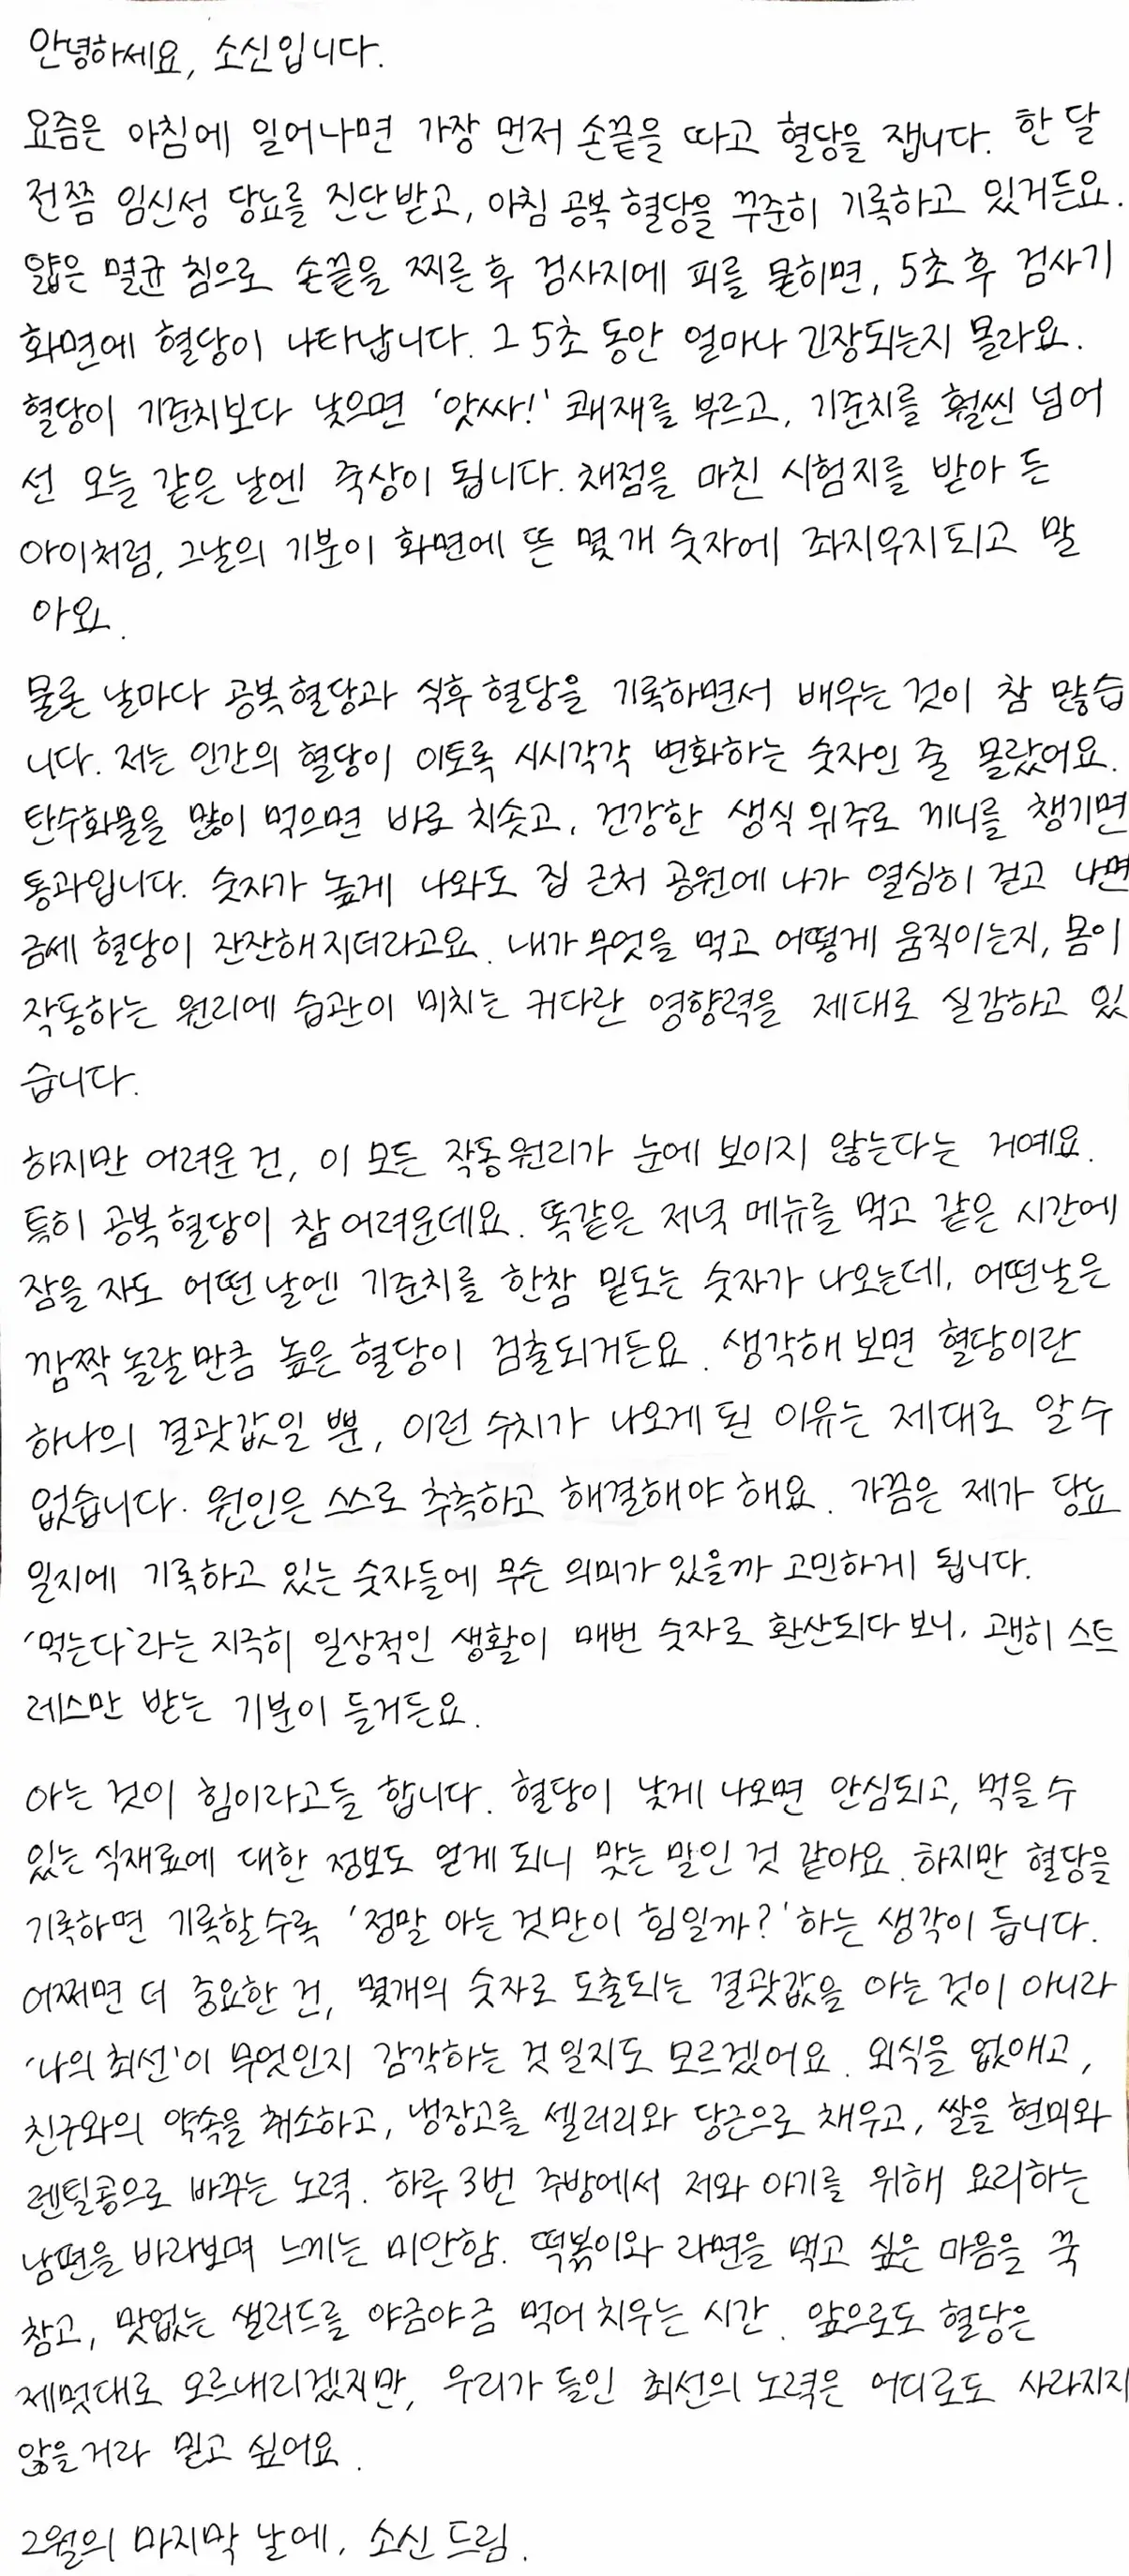 안녕하세요, 소신입니다.
요즘은 아침에 일어나면 가장 먼저 손끝을 따고 혈당을 잽니다. 한 달
전쯤 임신성 당뇨를 진단받고, 아침 공복 혈당을 꾸준히 기록하고 있거든요.
얇은 멸균 침으로 손끝을 찌른 후 검사지에 피를 묻히면, 5초 후 검사기
화면에 혈당이 나타납니다. 그 5초 동안 얼마나 긴장되는지 몰라요.
혈당이 기준치보다 낮으면 '앗싸!' 쾌재를 부르고, 기준치를 훨씬 넘어
선 오늘 같은 날엔 죽상이 됩니다. 채점을 마친 시험지를 받아 든
아이처럼, 그날의 기분이 화면에 뜬 몇 개 숫자에 좌지우지되고 말
아요.
물론 날마다 공복 혈당과 식후 혈당을 기록하면서 배우는 것이 참 많습
니다. 저는 인간의 혈당이 이토록 시시각각 변화하는 숫자인 줄 몰랐어요.
탄수화물을 많이 먹으면 바로 치솟고, 건강한 생식 위주로 끼니를 챙기면
통과입니다. 숫자가 높게 나와도 집 근처 공원에 나가 열심히 걷고 나면
금세 혈당이 잔잔해지더라고요. 내가 무엇을 먹고 어떻게 움직이는지, 몸이
작동하는 원리에 습관이 미치는 커다란 영향력을 제대로 실감하고 있
습니다.
하지만 어려운 건, 이 모든 작동 원리가 눈에 보이지 않는다는 거예요.
특히 공복 혈당이 참 어려운데요. 똑같은 저녁 메뉴를 먹고 같은 시간에
잠을 자도 어떤 날엔 기준치를 한참 밑도는 숫자가 나오는데, 어떤날은
깜짝 놀랄 만큼 높은 혈당이 검출되거든요. 생각해 보면 혈당이란
하나의 결괏값일 뿐, 이런 수치가 나오게 된 이유는 제대로 알 수
없습니다. 원인은 스스로 추측하고 해결해야 해요. 가끔은 제가 당뇨
일지에 기록하고 있는 숫자들에 무슨 의미가 있을까 고민하게 됩니다.
'먹는다'라는 지극히 일상적인 생활이 매번 숫자로 환산되다 보니, 괜히 스트
레스만 받는 기분이 들거든요.
아는 것이 힘이라고들 합니다. 혈당이 낮게 나오면 안심되고, 먹을 수
있는 식재료에 대한 정보도 얻게 되니 맞는 말인 것 같아요. 하지만 혈당을
기록하면 기록할수록 '정말 아는 것만이 힘일까?' 하는 생각이 듭니다.
어쩌면 더 중요한 건, 몇개의 숫자로 도출되는 결괏값을 아는 것이 아니라
'나의 최선'이 무엇인지 감각하는 것일지도 모르겠어요. 외식을 없애고,
친구와의 약속을 취소하고, 냉장고를 셀러리와 당근으로 채우고, 쌀을 현미와
렌틸콩으로 바꾸는 노력. 하루 3번 주방에서 저와 아기를 위해 요리하는
남편을 바라보며 느끼는 미안함. 떡볶이와 라면을 먹고 싶은 마음을 꾹
참고, 맛없는 샐러드를 야금야금 먹어 치우는 시간. 앞으로도 혈당은
제멋대로 오르내리겠지만, 우리가 들인 최선의 노력은 어디로도 사라지지
않을 거라 믿고 싶어요.
2월의 마지막 날에, 소신 드림.